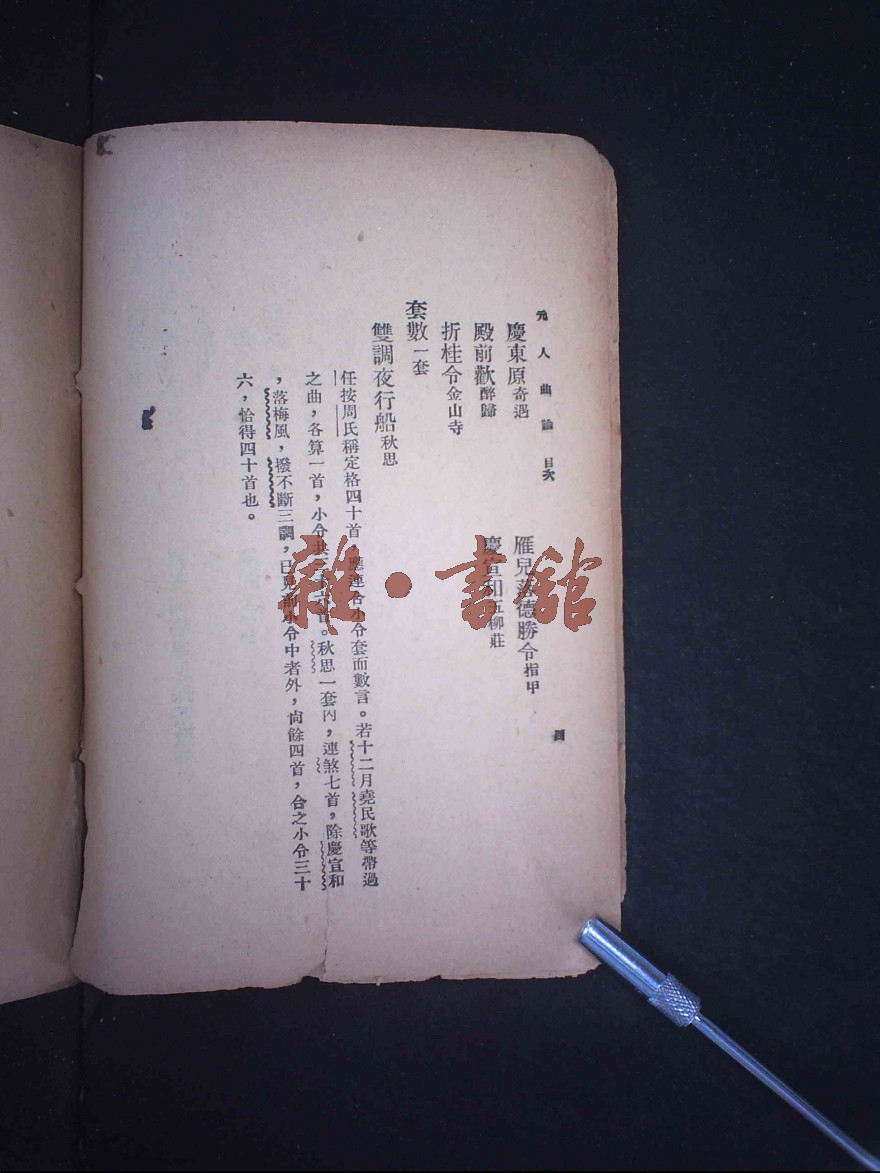 元人曲論 目次
四
慶東原奇遇
雁兒落德勝令指甲
殿前歡醉歸
慶宣和五柳莊
折桂令金山寺
套數一套
雙調夜行船秋思
任按周氏稱定格四十首，應連合小令套而數言。若十二月堯民歌等帶過
之曲，各算一首，小令共三十六首。秋思一套內，連煞七首，除慶宣和
，落梅風，撥不斷三調，已見前小令中者外，尚餘四首，合之小令三十
六，恰得四十首也。
雜·書館